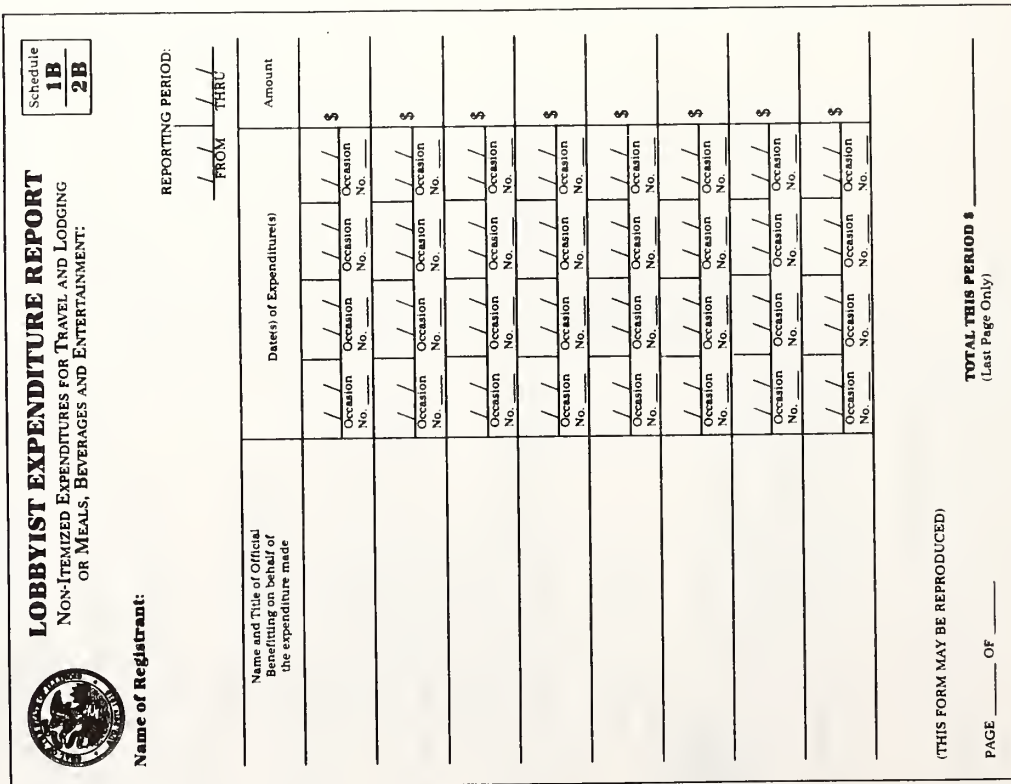 SEAL OF THE STATE OF ILLINOIS
LOBBYIST EXPENDITURE REPORT
NON-ITEMIZED EXPENDITURES FOR TRAVEL AND LODGING
OR MEALS, BEVERAGES AND ENTERTAINMENT:
Schedule
1B
2B
Name of Registrant:
REPORTING PERIOD:
/ / / /
FROM THRU
Name and Title of Official
Benefitting on behalf of
the expenditure made
Date(s) of Expenditure(s)
Amount
/ / / / / / / / $
Occasion Occasion Occasion Occasion
No. ___ No. ___ No. ___ No. ___
/ / / / / / / / $
Occasion Occasion Occasion Occasion
No. ___ No. ___ No. ___ No. ___
/ / / / / / / / $
Occasion Occasion Occasion Occasion
No. ___ No. ___ No. ___ No. ___
/ / / / / / / / $
Occasion Occasion Occasion Occasion
No. ___ No. ___ No. ___ No. ___
/ / / / / / / / $
Occasion Occasion Occasion Occasion
No. ___ No. ___ No. ___ No. ___
/ / / / / / / / $
Occasion Occasion Occasion Occasion
No. ___ No. ___ No. ___ No. ___
/ / / / / / / / $
Occasion Occasion Occasion Occasion
No. ___ No. ___ No. ___ No. ___
/ / / / / / / / $
Occasion Occasion Occasion Occasion
No. ___ No. ___ No. ___ No. ___
(THIS FORM MAY BE REPRODUCED)
PAGE _____ OF _____
TOTAL THIS PERIOD $ __________
(Last Page Only)